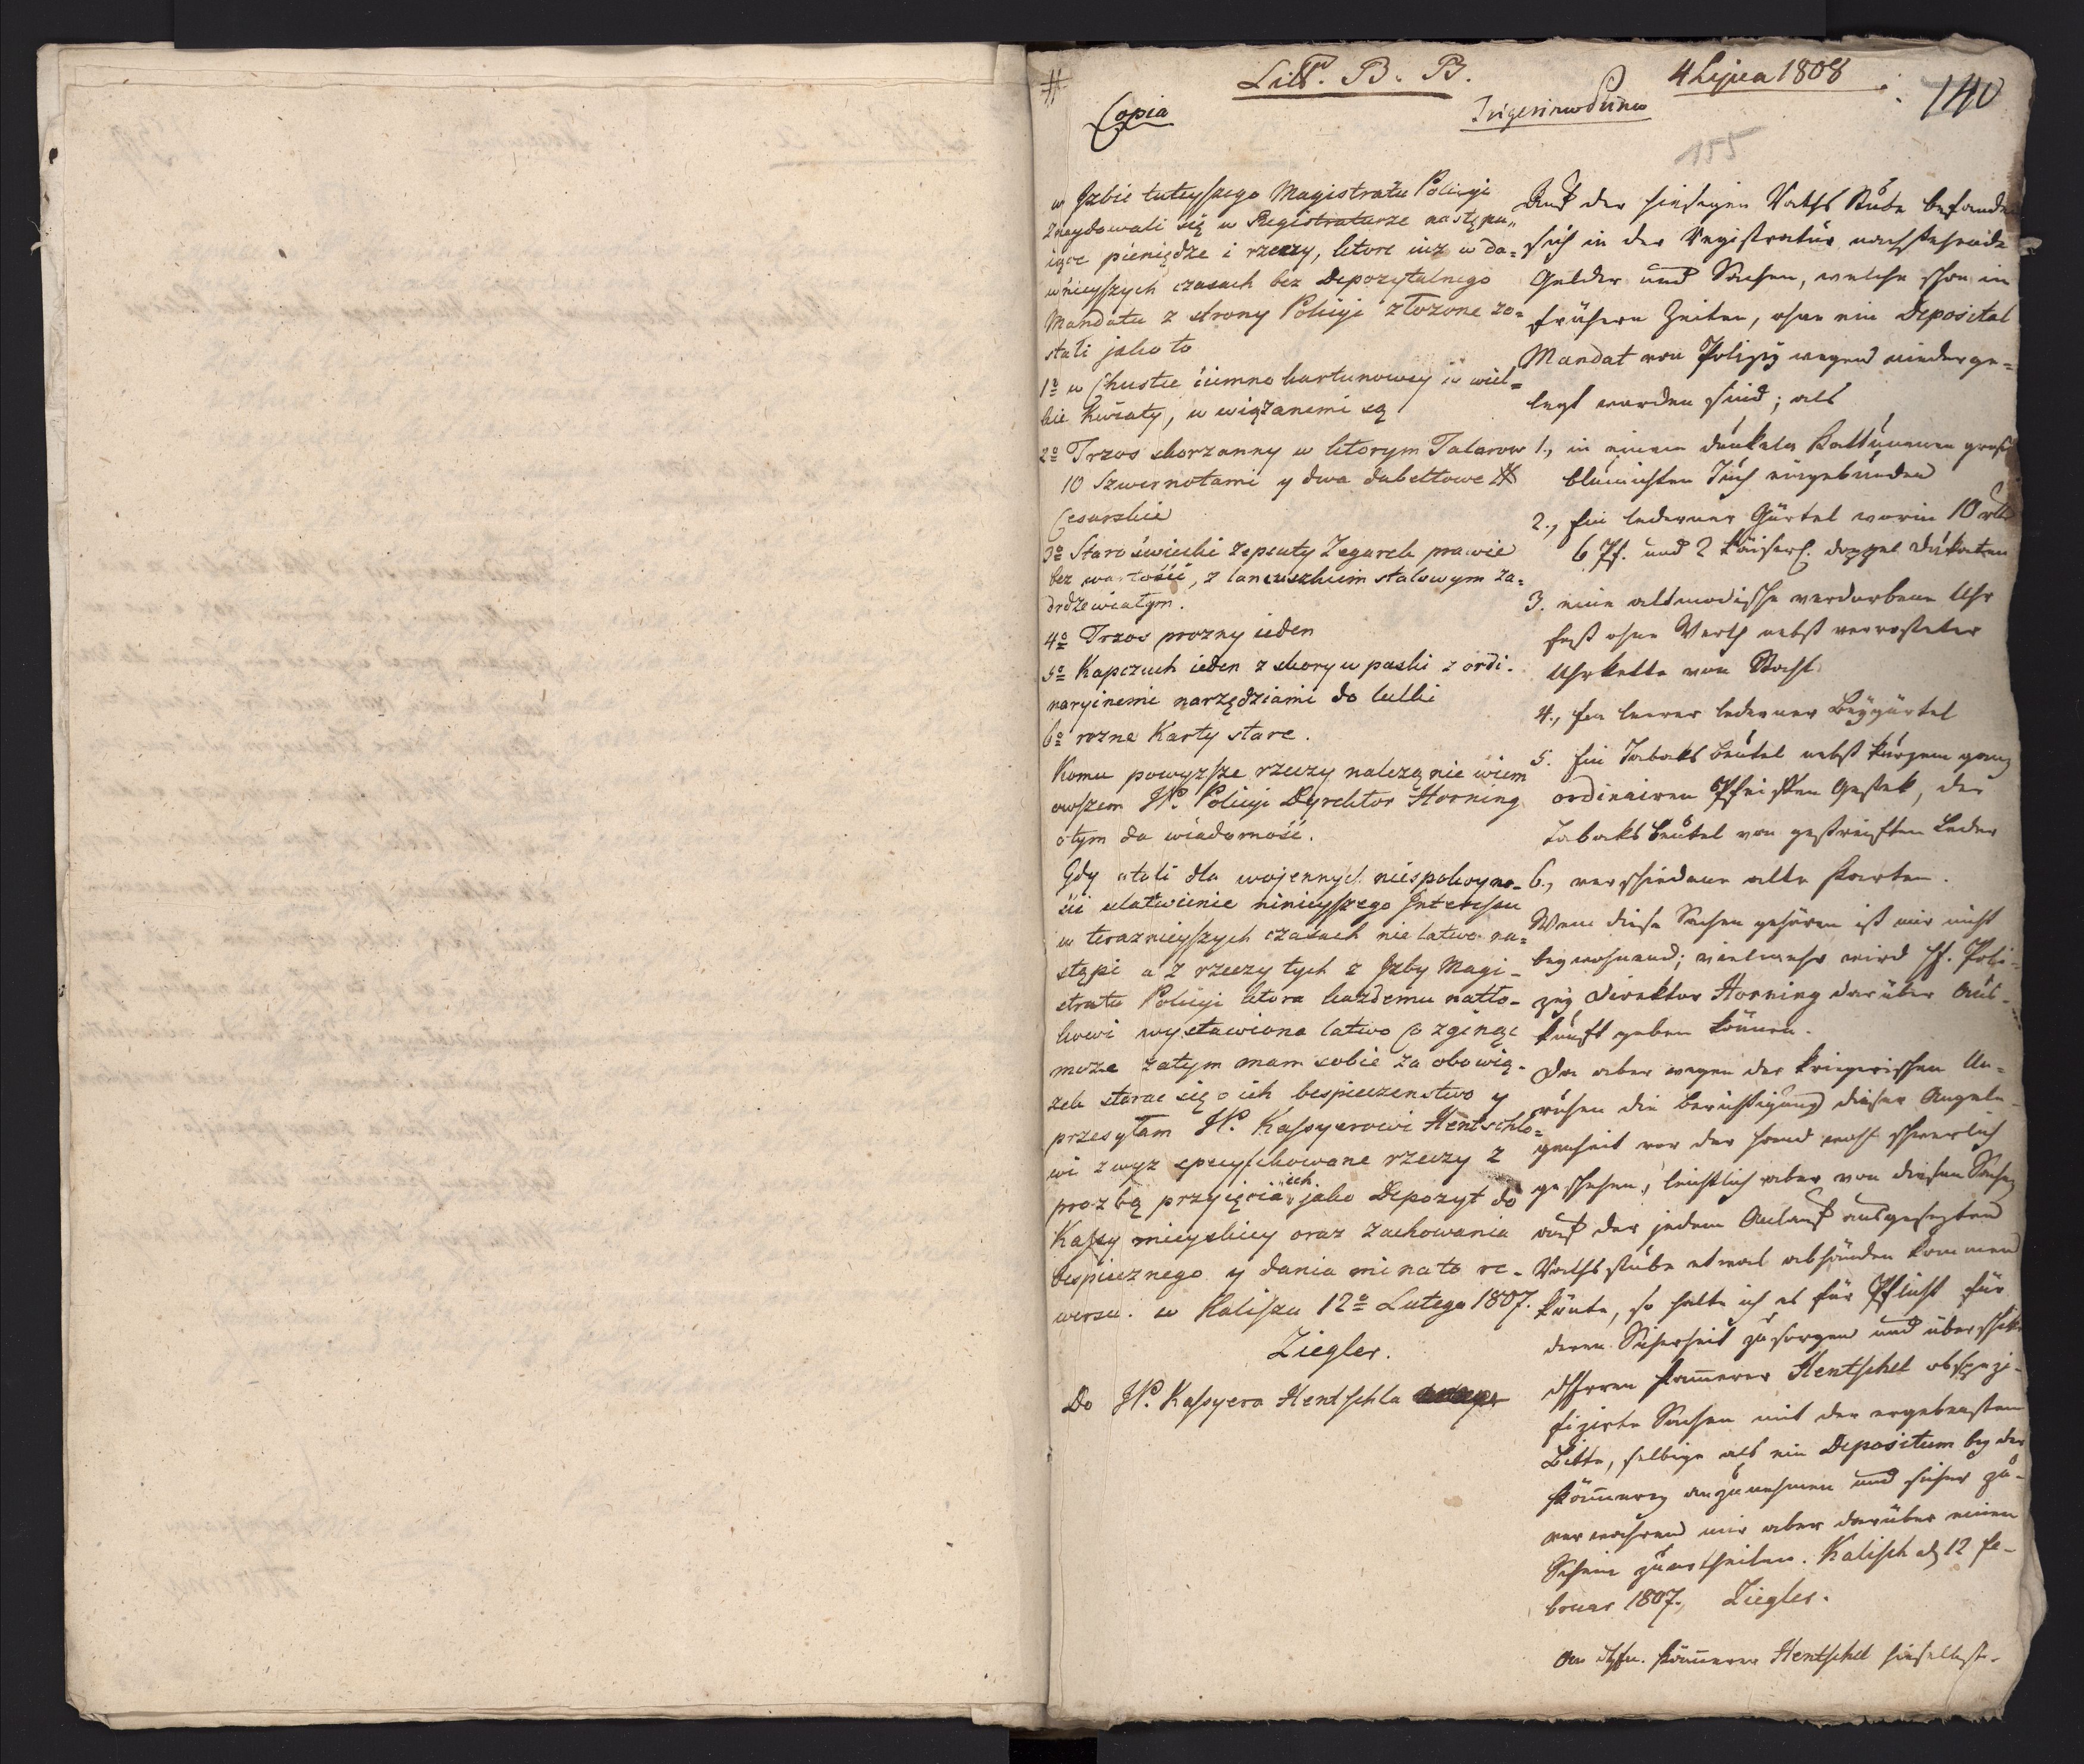 Litt. B. B.
4 Lipca 1808
140
Copia
155
w Jzbie tuteyszego Magistratu Policyi
znaydowali się w Registraturze następu„
iące pieniędze i rzeczy, ktore iuz w da=
wnieyszych czasach bez Depozytalnego
Mandatu z strony Policyi złozone zo=
stali jako to
1o w Chustce ciemno kartunowey w wiel=
kie Kwiaty, uwiązanemi są
2o Trzos skorzanny w ktorym Talarow
10 Szwernotami y dwa dubeltowe #
Cesarskie
3o Staro swiecki zepsuty Zegarek prawie
bez wartości, z lancuszkiem stalowym za=
drdzewiałym.
4o Trzos prozny ieden
5o Kapczuch ieden z skory w paski z ordi=
naryinemi narzędziami do lulki
6o rozne Karty stare.
Komu powyzsze rzeczy nalezą nie wiem
owszem JP. Policyi Dyrektor Horning
o tym da wiadomość.
Gdy atoli dla wojennych niespokoyno=
ści ułatwienie ninieyszego Interessu
w teraznieyszych czasach nie latwo na=
stąpi a z rzeczy tych z Jzby Magi=
stratu Policyi ktora kazdemu natło=
kowi wystawiona latwo co zginąć
moze zatym mam sobie za obowią=
zek starac się o ich bespieczenstwo y
przesyłam JP. Kassyerowi Hentschlo=
wi zwyz specyfikowane rzeczy z
prozbą przyięcia ich jako Depozyt do
Kassy mieyskiey oraz zachowania
bespiecznego y dania mi na to re=
wersu. w Kaliszu 12o Lutego 1807.
Ziegler.
Do JP. Kassyera Hentschla
Auf der hiesigen Raths Stube befanden
sich in der Registratur nachstehende
Gelder und Sachen, welche schon in
frühern Zeiten, ohne ein Deposital
Mandat von Polizey wegen niederge=
legt worden sind; als
1., in einem dunkeln Kattunenen groß
blumichten Tuch eingebunden
2., Ein lederner Gürtel worin 10 rtl
6 Pf. und 2 Kaiserl. doppel Dukaten
3. eine altmodische verdorbene Uhr
fast ohne Werth nebst verrosteter
Uhrkette von Stahl
4., Ein leerer lederner Leibgürtel
5. Ein Tabaks Beutel nebst kurzem ganz
ordinairen Pfeiffen Gestek, der
Tabaks Beutel von gestreiften Leder
6., verschiedene alte Karten.
Wem diese Sachen gehören ist mir nicht
beywohnend; vielmehr wird H. Poli=
zey Direktor Horning darüber Aus=
kunft geben können.
Da aber wegen der kriegerischen Un=
ruhen die Berichtigung dieser Angele=
genheit vor der Hand wohl schwerlich
geschehen, leichtlich aber von diesen Sachen
auf der jedem Anlauf ausgesezten
Rathsstube etwas abhänden kommen
könte, so halte ich es für Pflicht für
deren Sicherheit zu sorgen und überschike
dHerrn Kämmerer Hentschel obspezi=
fizirte Sachen mit der ergebensten
Bitte, selbige als ein Depositum bey der
Kämmerey anzunehmen und sicher zu=
verwahren mir aber darüber einen
Schein zu ertheilen. Kalisch d 12 Fe=
bruar 1807. Ziegler.
An dHrn. Kämmerer Hentschel hieselbst.